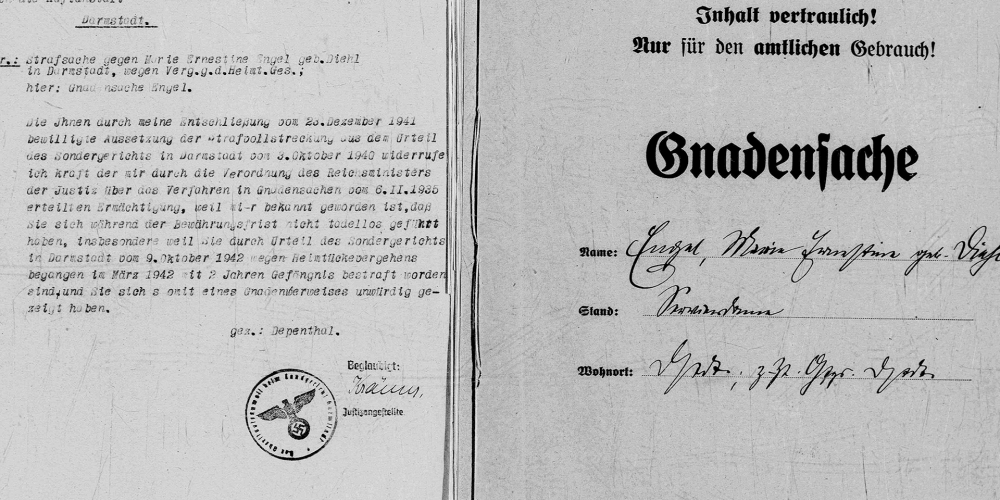 Darmstadt.
r.: Strafsache gegen Marie Ernestine Engel geb.Diehl
in Darmstadt, wegen Verg.g.d.Heimt.Ges.;
hier: Gnadensache Engel.
Die Jhnen durch meine Entschließung vom 23.Dezember 1941
bewilligte Aussetzung der Strafvollstreckung aus dem Urteil
des Sondergerichts in Darmstadt vom 3.Oktober 1940 widerrufe
ich kraft der mir durch die Verordnung des Reichsministers
der Justiz über das Verfahren in Gnadensachen vom 6.II.1935
erteilten Ermächtigung, weil mi-r bekannt geworden ist,daß
Sie sich während der Bewährungsfrist nicht tadellos geführt
haben, insbesondere weil Sie durch Urteil des Sondergerichts
in Darmstadt vom 9.Oktober 1942 wegen Heimtückevergehens
begangen im März 1942 mit 2 Jahren Gefängnis bestraft worden
sind,und Sie sich s omit eines Gnadenerweises unwürdig ge-
zeigt haben.
gez.: Depenthal.
Beglaubigt:
Justizangestellte
Inhalt vertraulich!
Nur für den amtlichen Gebrauch!
Gnadensache
Name: Engel, Marie Ernestine geb. Diehl
Stand: Servierdame
Wohnort: Dstdt., z.Zt. Dstdt.